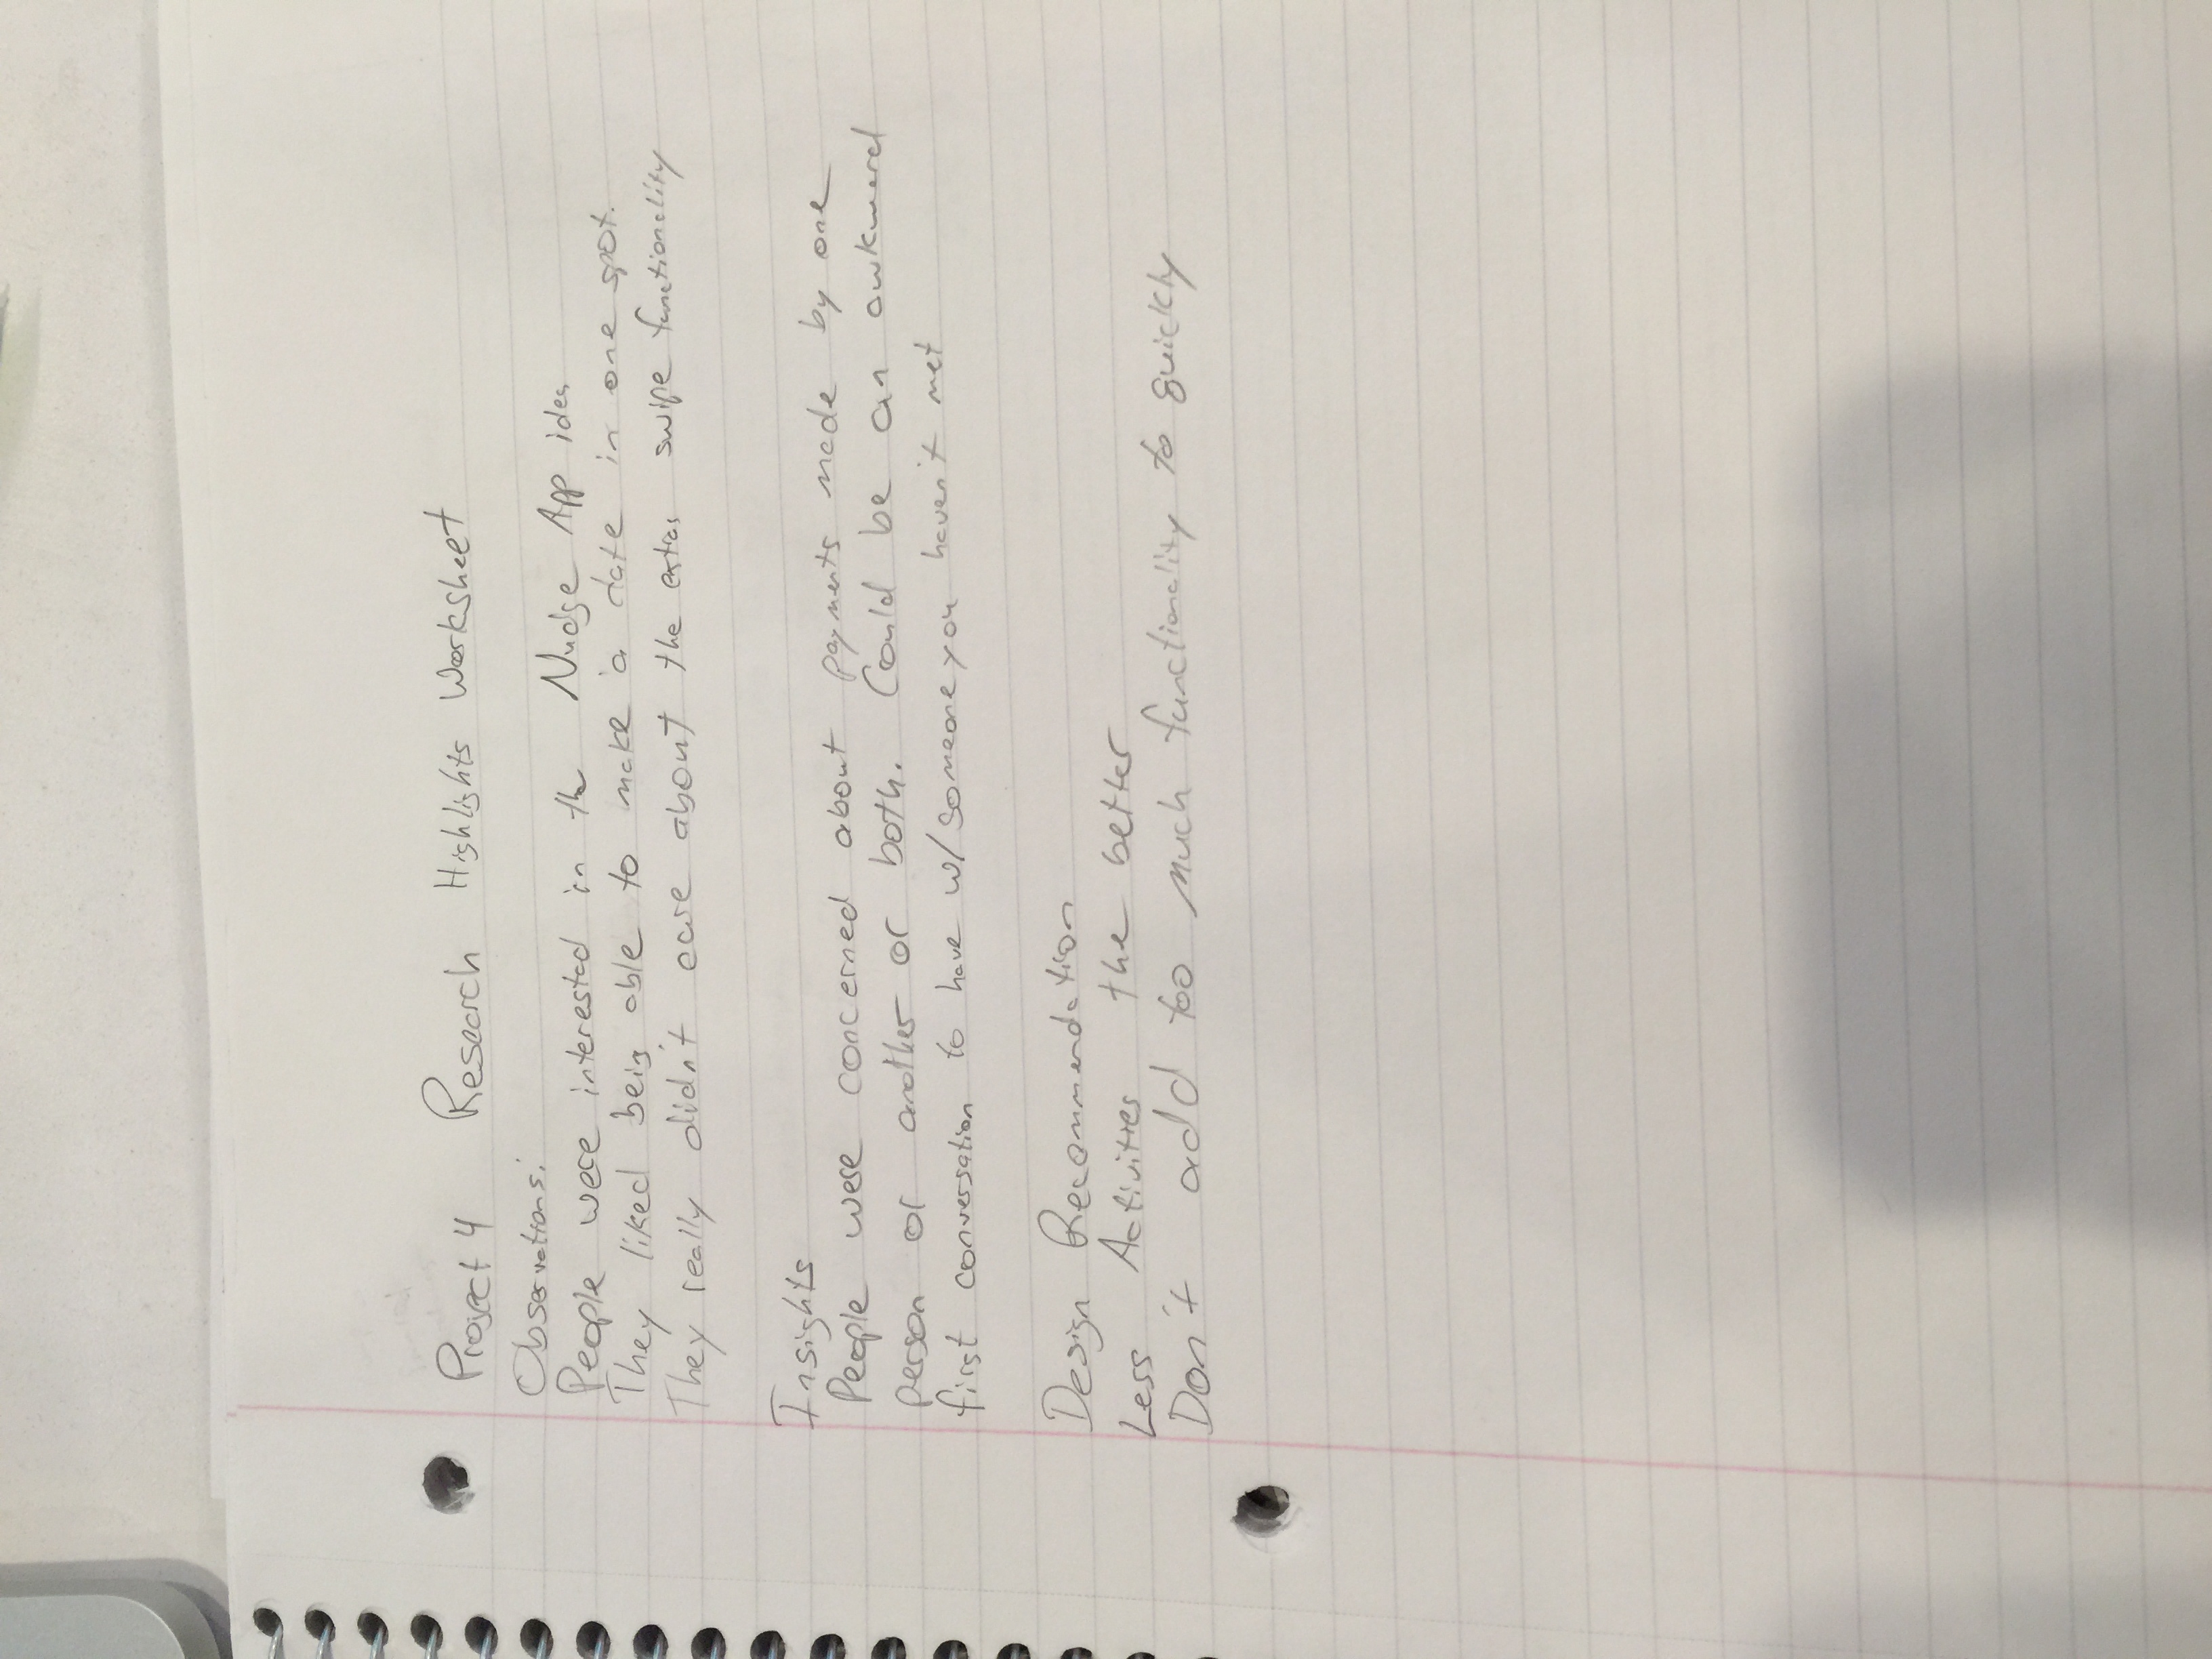 Project 4 Research Highlights Worksheet
Observations:
People were interested in the Nudge App idea
They liked being able to make a date in one spot.
They really didn't care about the extra swipe functionality
Insights
People were concerned about payments made by one
person or another or both. Could be an awkward
first conversation to have w/ someone you haven't met
Design Recommendation
Less Activities the better
Don't add too much functionality to quickly